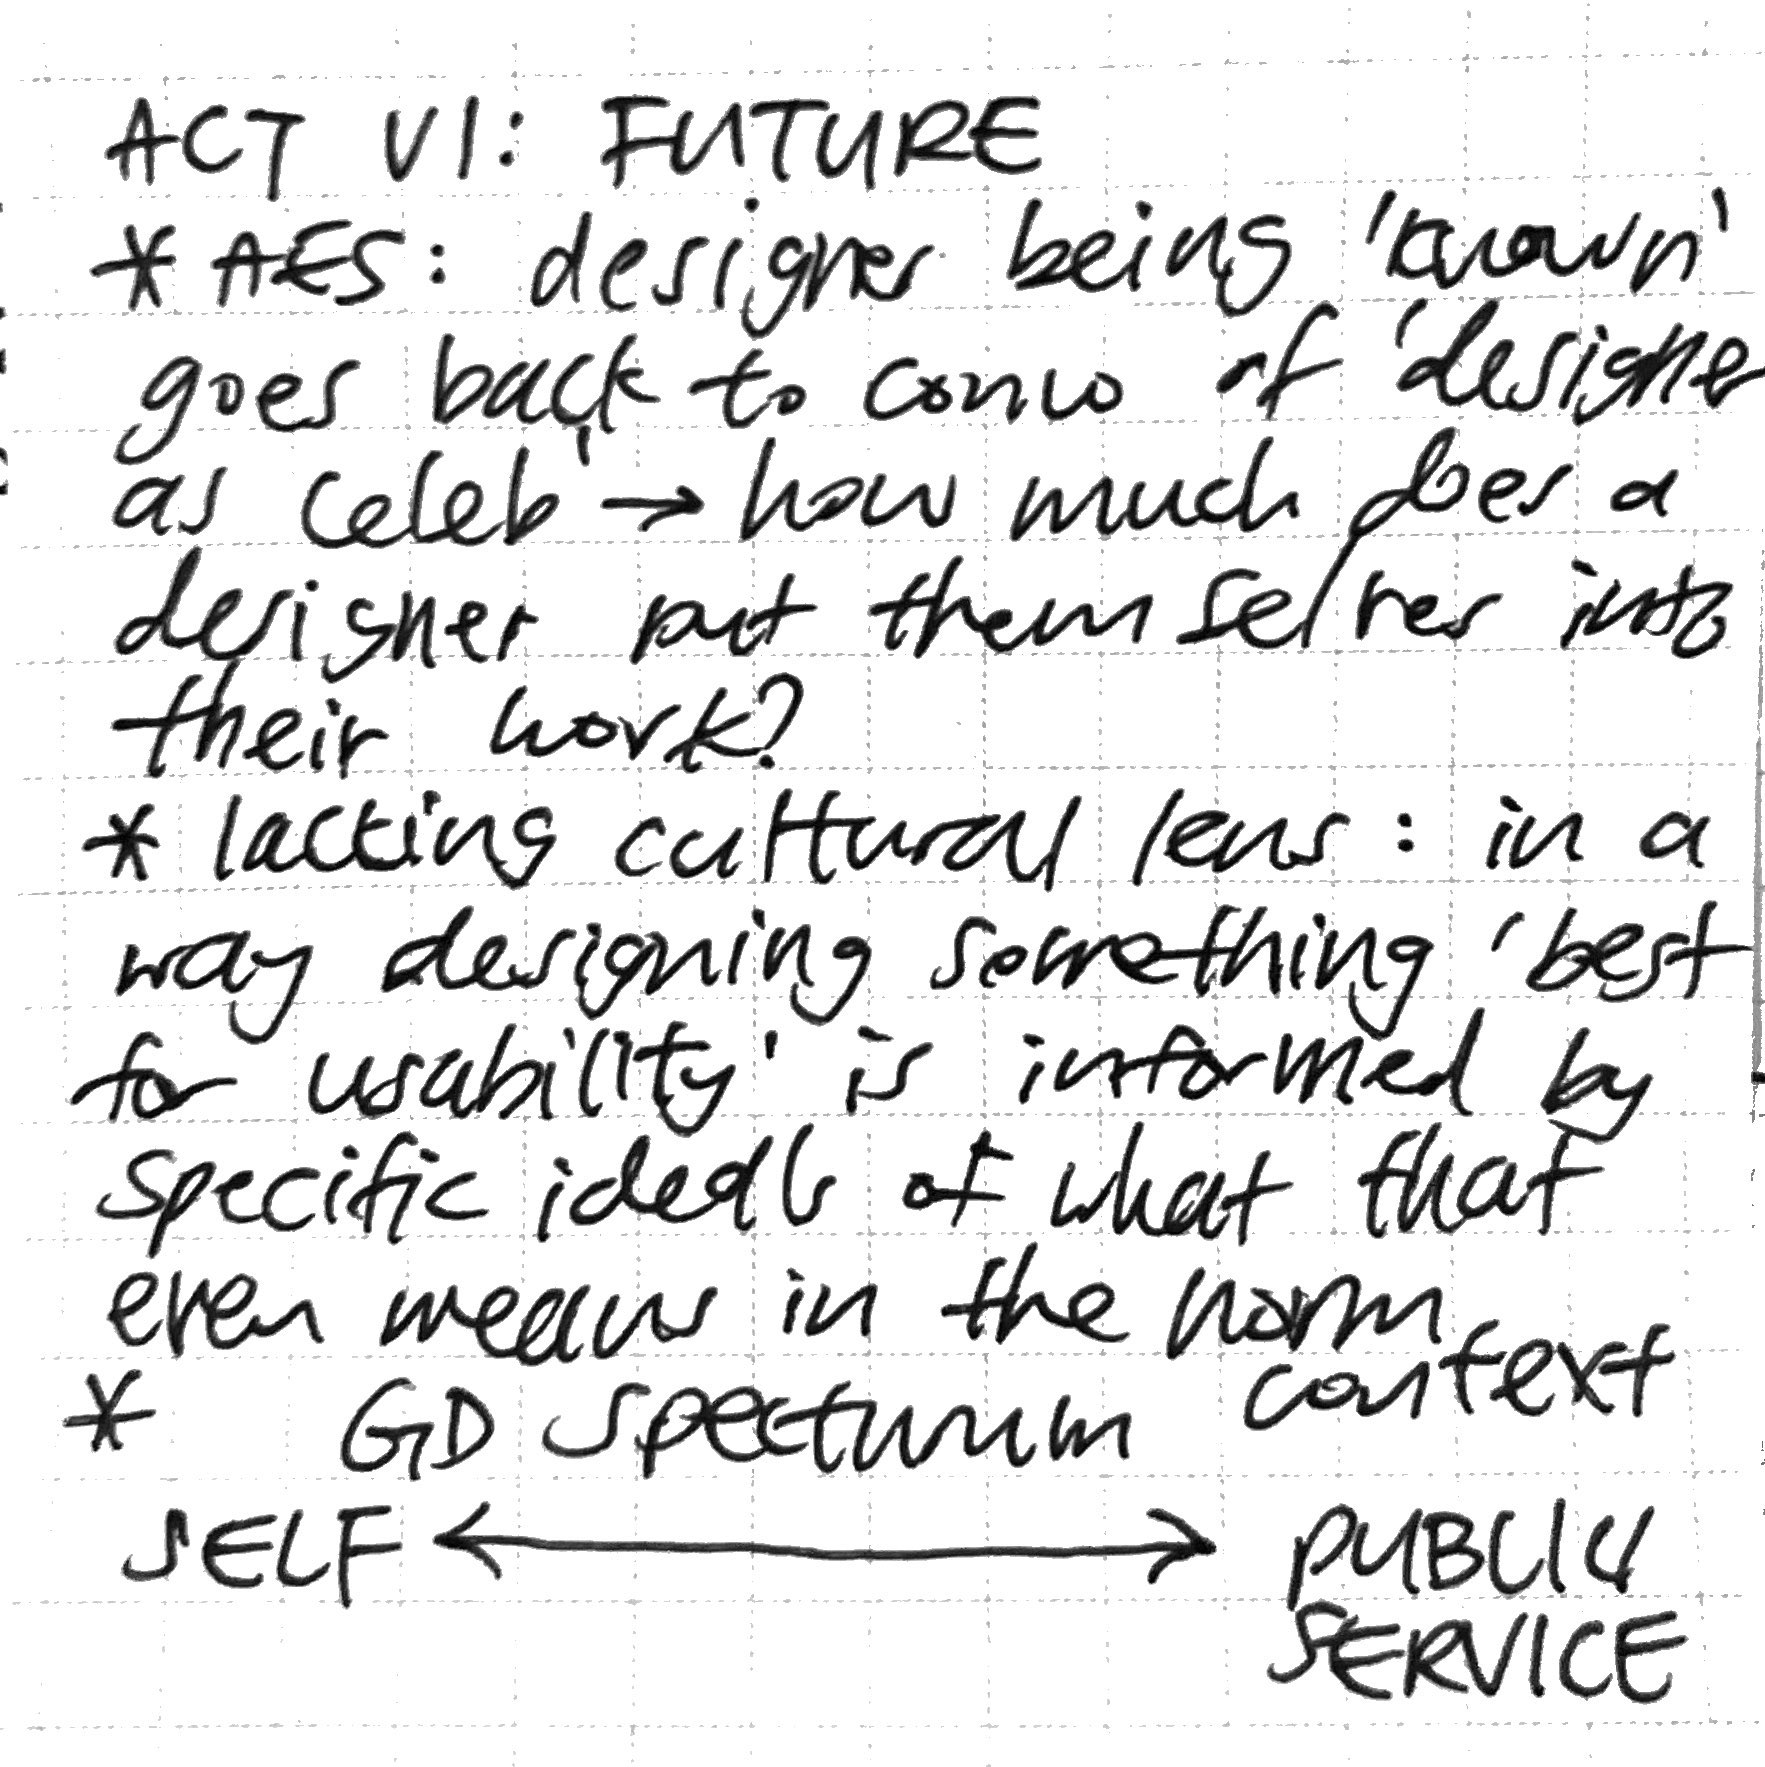 ACT VI: FUTURE
* AES: designer being 'known'
goes back to convo of 'designer
as celeb' → how much does a
designer put themselves into
their work?
* lacking cultural lens: in a
way designing something 'best
for usability' is informed by
specific ideals of what that
even means in the norm
context
* GD spectrum
SELF ↔ PUBLIC
SERVICE